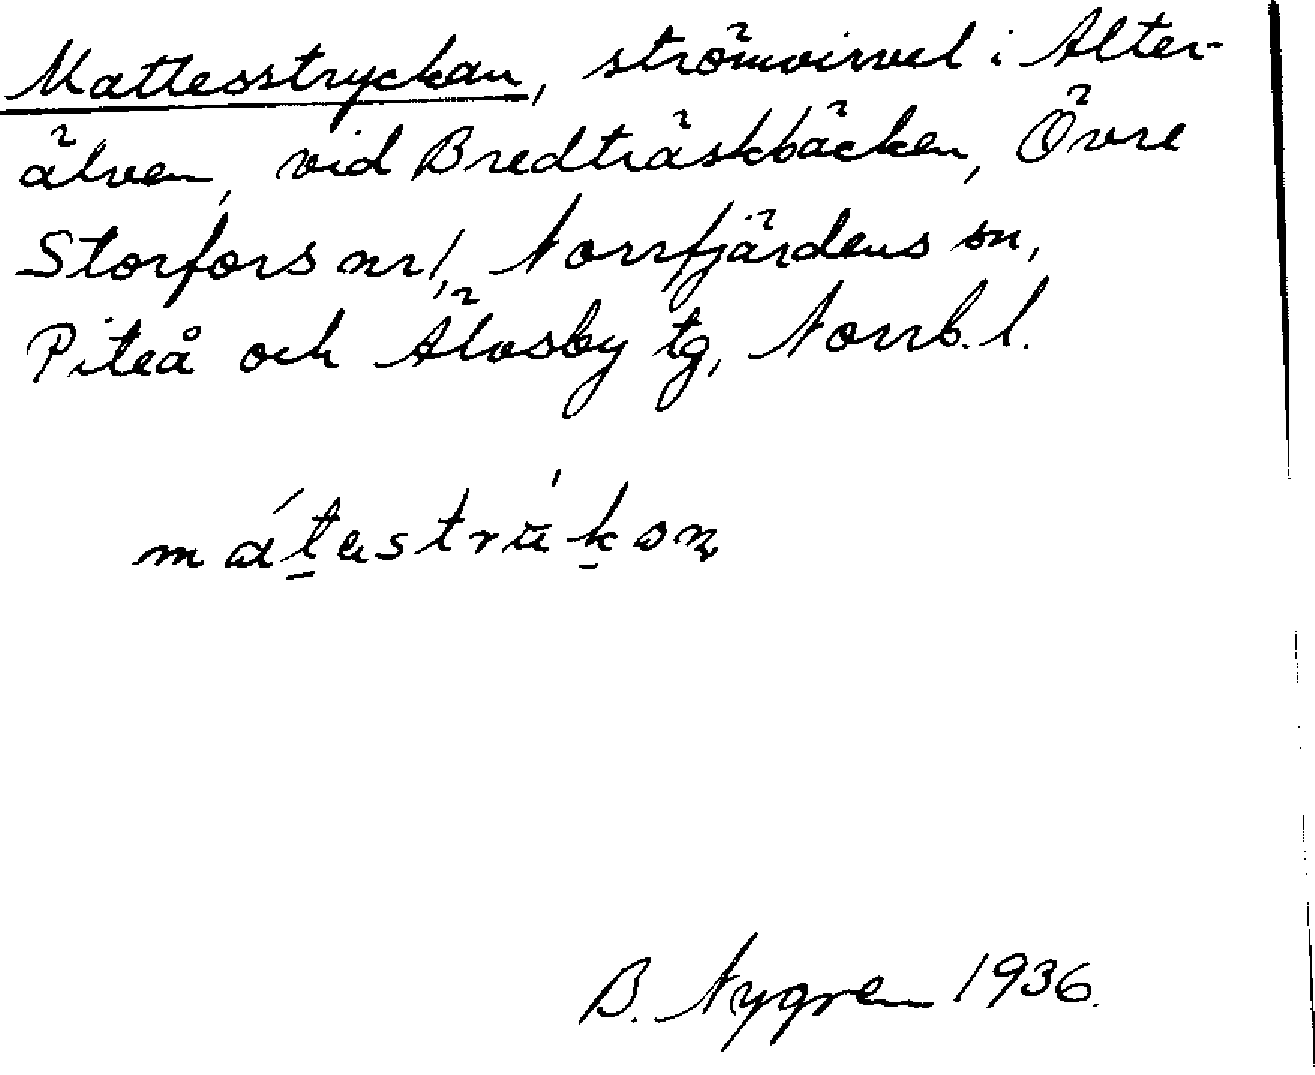 Mattesstryckan, strömvirvel i Alter-
älven, vid Bredträskbäcken, Övre
Storfors nr 1, Norrfjärdens sn,
Piteå och Älvsby tg, Norrb. l.
B. Nygren 1936.